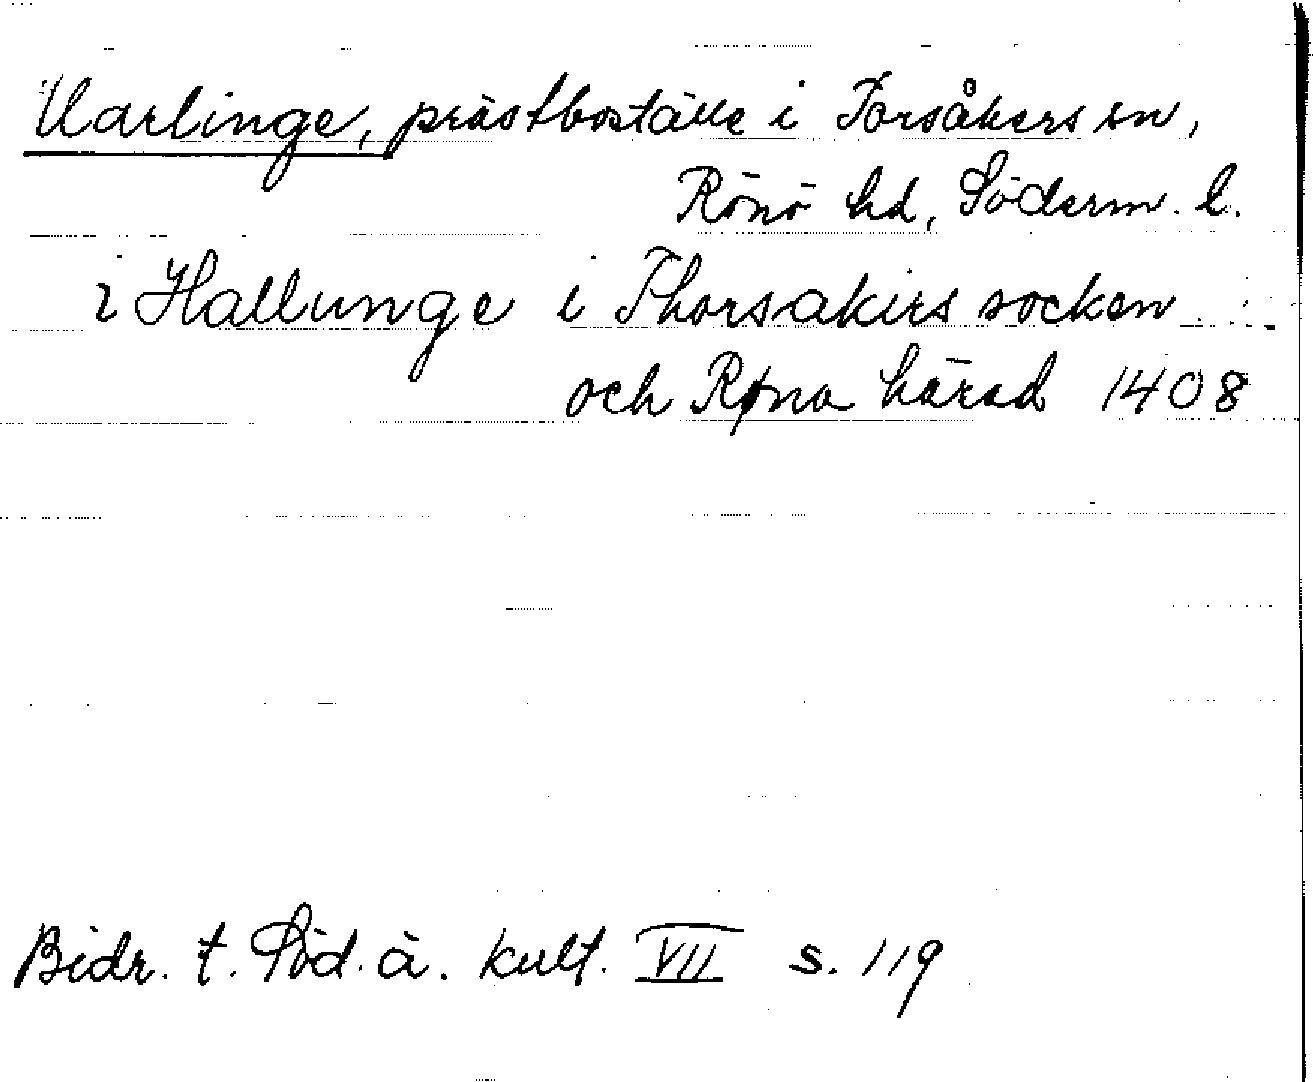 Varlinge, prästboställe i Torsåkers sn,
Rönö hd, Söderm. l.
i Hallunge i Thorsakirs socken
och Røna härad 1408
Bidr. t. Söd. ä. kult. VII s. 119